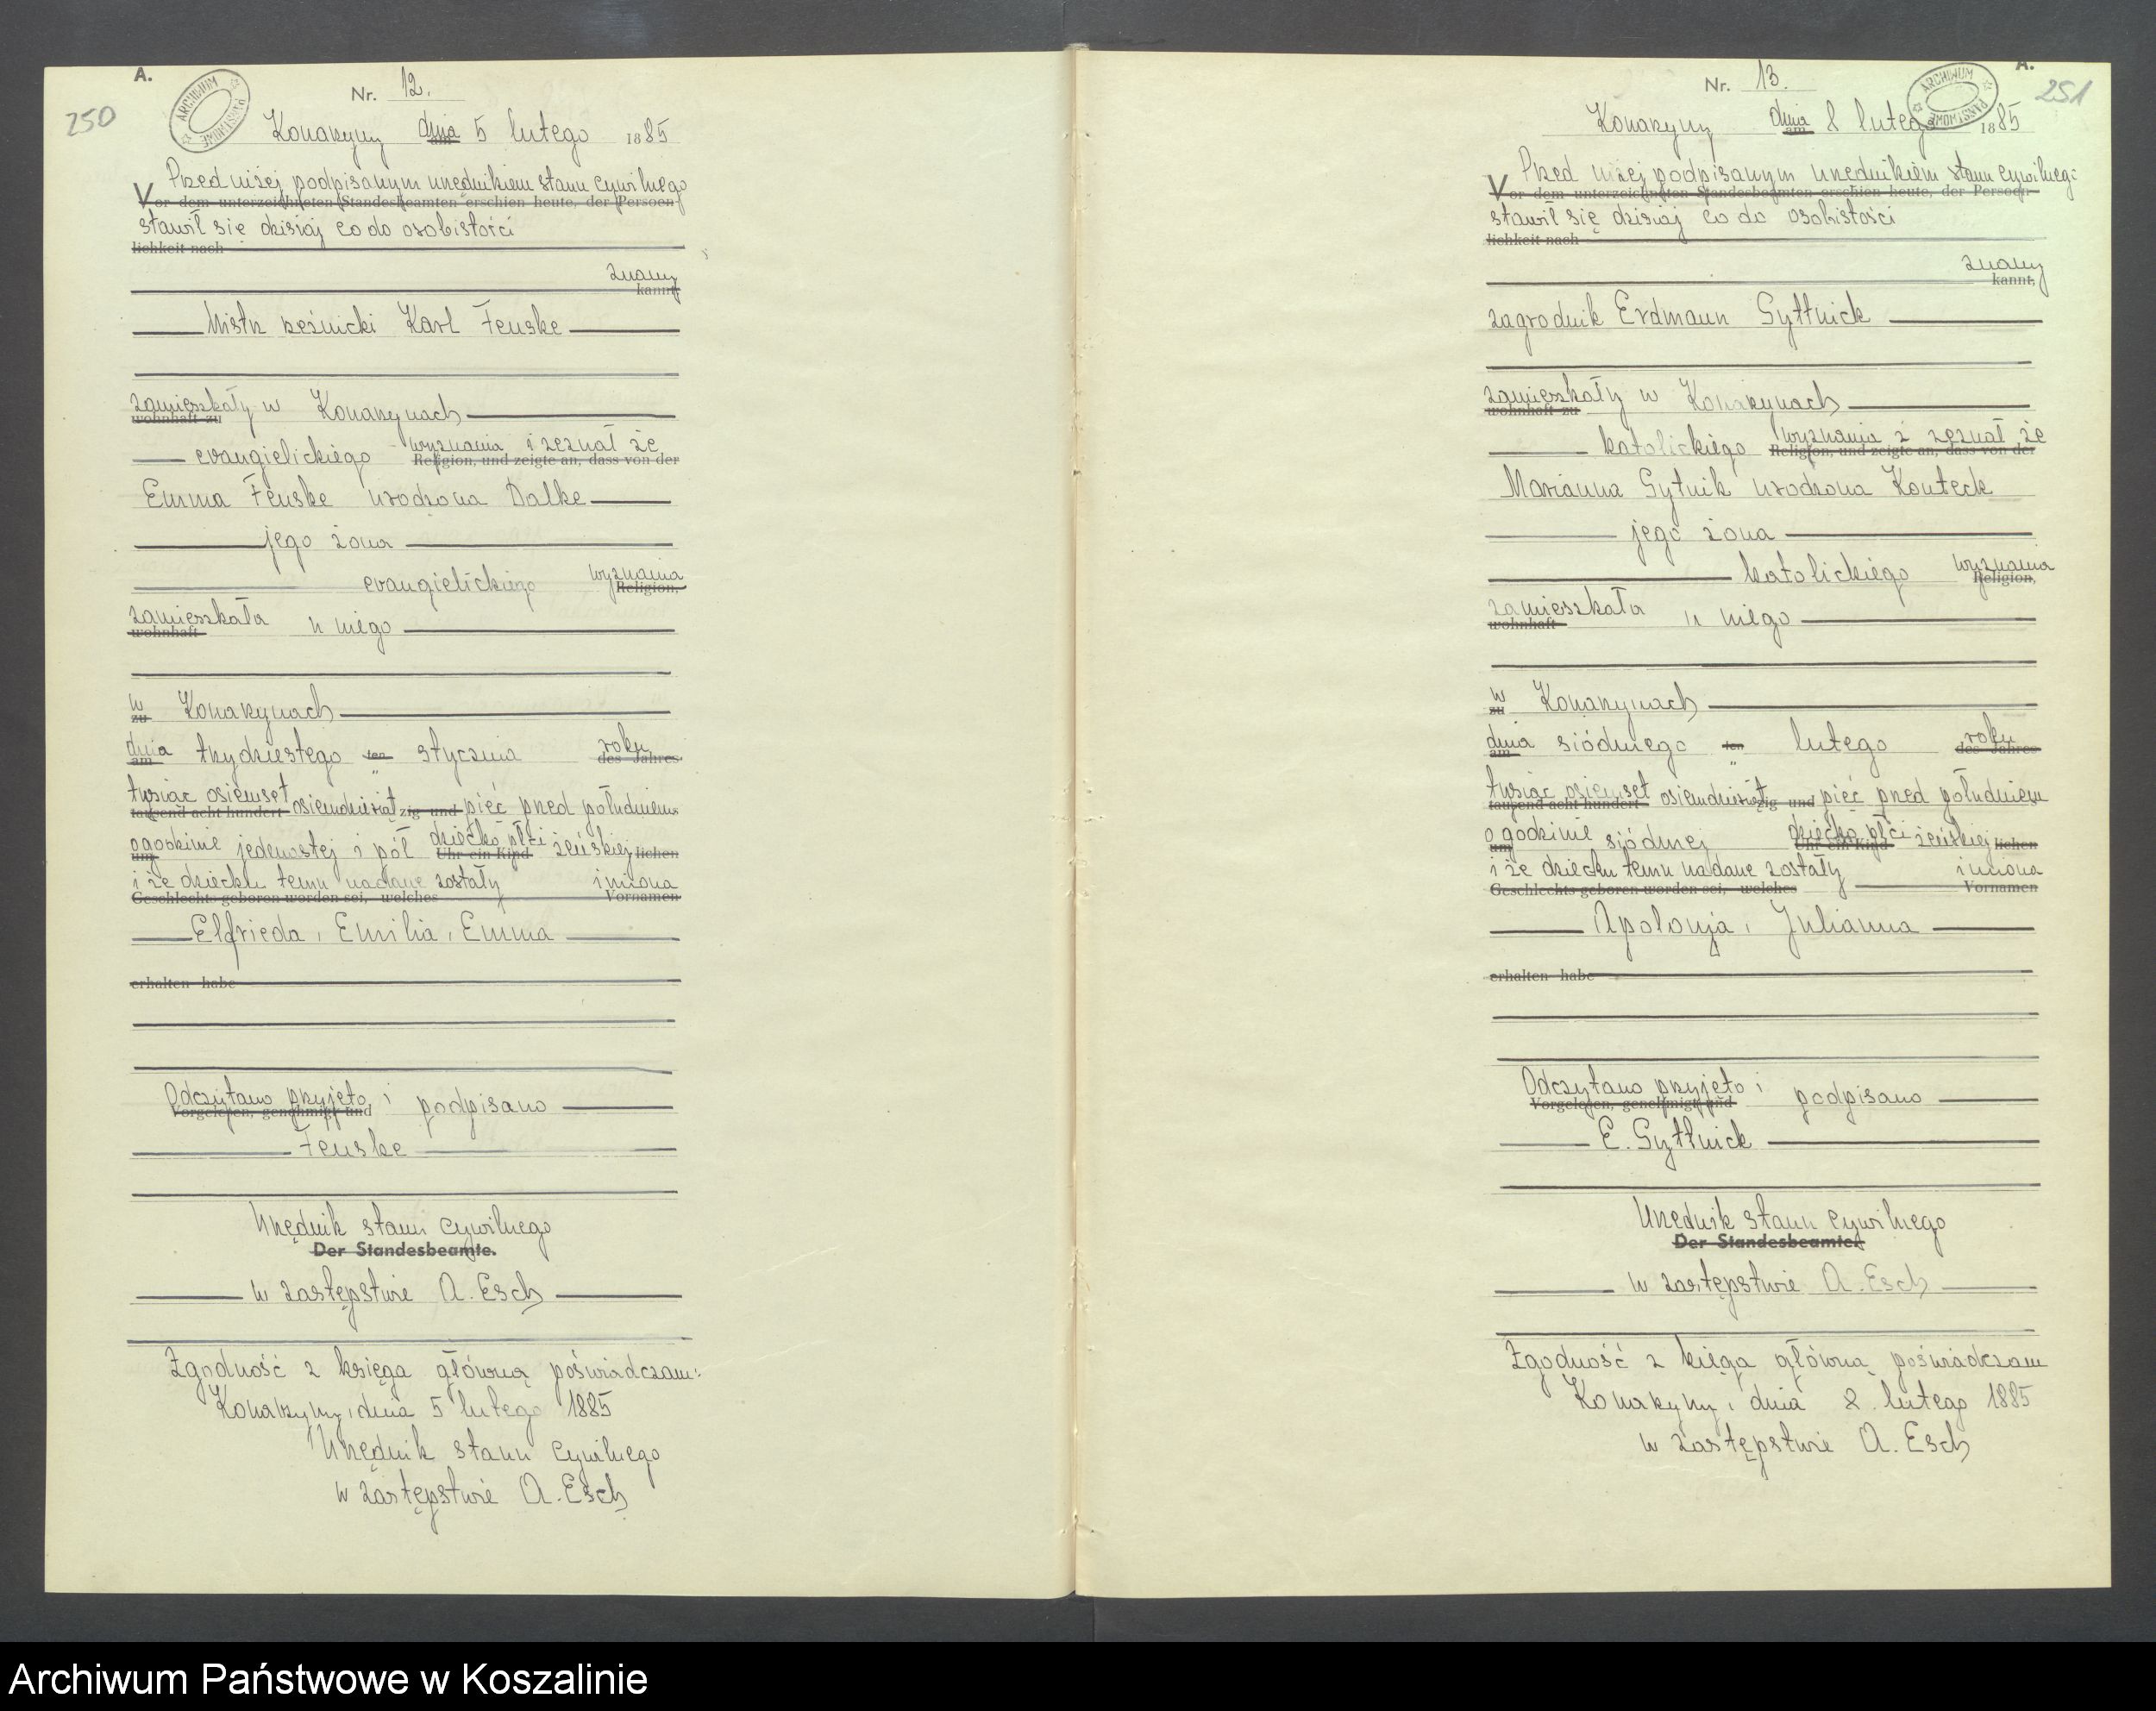 A.
250
ARCHIWUM PAŃSTWOWE
Nr. 12.
Konarzyny dnia am 5 lutego 1885
Przed niżej podpisanym urzędnikiem stanu cywilnego
Vor dem unterzeichneten Standesbeamten erschien heute, der Persoen
stawił się dzisiaj co do osobistości
lichkeit nach
znany
kannt,
Mistrz rzeźnicki Karl Fenske
zamieszkały w Konarzynach
wohnhaft zu
evangielickiego wyznania i zeznał że
Religion, und zeigte an, dass von der
Emma Fenske urodzona Dalke
jego żona
evangielickiego wyznania
Religion,
zamieszkała u niego
wohnhaft
w Konarzynach
zu
dnia trzydziestego ten stycznia roku
am des Jahres
tysiąc osiemset osiemdziesiąt zig und pięć przed południem
tausend acht hundert
o godzinie jedenastej i pół dziecko płci żeńskiej lichen
um Uhr ein Kind
i że dziecku temu nadane zostały imiona
Geschlechts geboren worden sei, welches Vornamen
Elfrieda, Emilia, Emma
erhalten habe
Odczytano przyjęto i podpisano
Vorgelesen, genehmigt und
Fenske
Urzędnik stanu cywilnego
Der Standesbeamte.
w zastępstwie A. Esch
Zgodność z księga główną poświadczam:
Konarzyny, dnia 5 lutego 1885
Urzędnik stanu cywilnego
w zastępstwie A. Esch
A.
251
ARCHIWUM PAŃSTWOWE
Nr. 13.
Konarzyny dnia am 8 lutego 1885
Przed niżej podpisanym urzędnikiem stanu cywilneg:
Vor dem unterzeichneten Standesbeamten erschien heute, der Persoen
stawił się dzisiaj co do osobistości
lichkeit nach
znany
kannt,
zagrodnik Erdmann Gyttnick
zamieszkały w Konarzynach
wohnhaft zu
katolickiego wyznania i zeznał że
Religion, und zeigte an, dass von der
Marianna Gytnik urodzona Konteck
jego żona
katolickiego wyznania
Religion,
zamieszkała u niego
wohnhaft
w Konarzynach
zu
dnia siódmego ten lutego roku
am des Jahres
tysiąc osiemset osiemdziesiąt zig und pięć przed południem
tausend acht hundert
o godzinie siódmej dziecko płci żeńskiej lichen
um Uhr ein Kind
i że dziecku temu nadane zostały imiona
Geschlechts geboren worden sei, welches Vornamen
Apolonja, Julianna
erhalten habe
Odczytano przyjęto i podpisano
Vorgelesen, genehmigt und
E. Gyttnick
Urzędnik stanu cywilnego
Der Standesbeamte.
w zastępstwie A. Esch
Zgodność z kięga główną poświadczam
Konarzyny, dnia 8 lutego 1885
w zastępstwie A. Esch
Archiwum Państwowe w Koszalinie